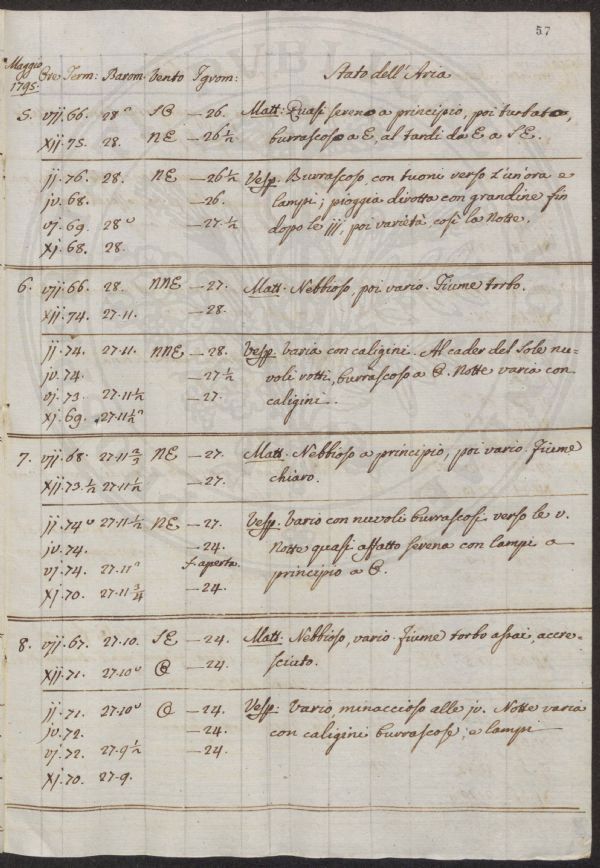 57
Maggio
1795.
Ore Term: Barom: Vento Igrom: Stato dell'Aria
5. vij. 66. 28 SO —26. Matt: Quasi sereno a principio, poi turbato,
xij. 75. 28. NE —26½ burrascoso a E, al tardi da E a SE.
ij. 76. 28. NE —26½ Vesp. Burrascoso, con tuoni verso l'un'ora e
jv. 68. —26. lampi; pioggia dirotta con grandine fin
vj. 69. 28 —27.½ dopo le iij, poi varietà, così la Notte.
xj. 68. 28.
6. vij. 66. 28. NNE —27. Matt. Nebbioso, poi vario. Fiume torbo.
xij. 74. 27.11. —28.
ij. 74. 27.11. NNE —28. Vesp. Varia con caligini. Al cader del Sole nu=
jv. 74. —27½ voli rotti, burrascoso a O. Notte varia con
vj. 73. 27.11½ —27. caligini.
xj. 69. 27.11½
7. vij. 68. 27.11⅔ NE —27. Matt. Nebbioso a principio, poi vario. Fiume
xij. 73.½ 27.11½ —27. chiaro.
ij. 74 27.11½ NE —27. Vesp. Vario con nuvoli burrascosi verso le v.
jv. 74. —24. Notte quasi affatto serena con lampi a
vj. 74. 27.11 f. aperta principio a O.
xj. 70. 27.11¾ —24.
8. vij. 67. 27.10. SE —24. Matt. Nebbioso, vario. Fiume torbo assai, accre=
xij. 71. 27.10 O —24. sciuto.
ij. 71. 27.10 O —24. Vesp. Vario minaccioso alle jv. Notte varia
jv. 72. —24. con caligini burrascose, e lampi
vj. 72. 27.9½ —24.
xj. 70. 27.9.